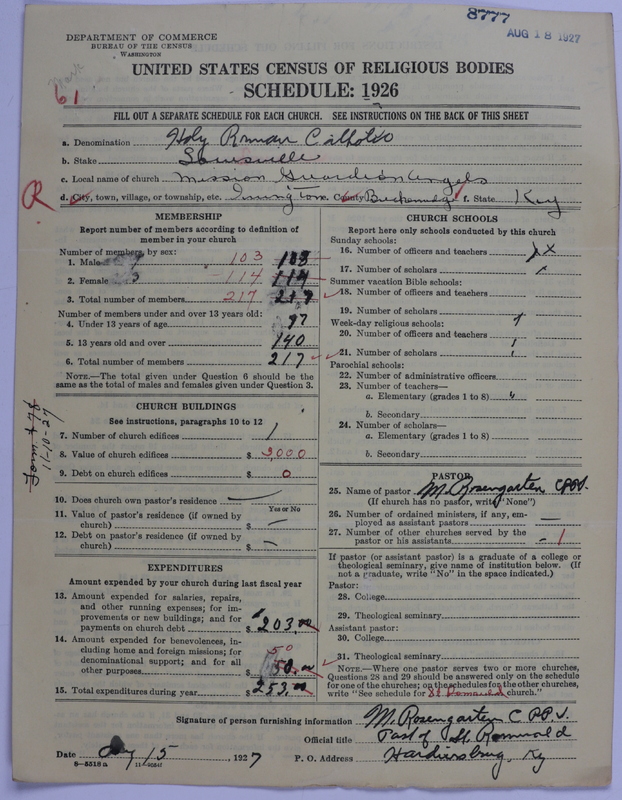 8777
AUG 18 1927
DEPARTMENT OF COMMERCE
BUREAU OF THE CENSUS
WASHINGTON
61
UNITED STATES CENSUS OF RELIGIOUS BODIES
SCHEDULE: 1926
FILL OUT A SEPARATE SCHEDULE FOR EACH CHURCH. SEE INSTRUCTIONS ON THE BACK OF THIS SHEET
a. Denomination Holy Roman Catholic
b. Stake Louisville
c. Local name of church Mission Guardian Angels
R
d. City, town, village, or township, etc. Irvington e. County Breckenridge f. State Key
MEMBERSHIP
Report number of members according to definition of
member in your church
Number of members, by sex:
1. Male 103 103
2. Female 114 114
3. Total number of members 217 217
Number of members under and over 13 years old:
4. Under 13 years of age
5. 13 years old and over 140
6. Total number of members 217
NOTE.—The total given under Question 6 should be the
same as the total of males and females given under Question 3.
CHURCH BUILDINGS
See instructions, paragraphs 10 to 12
7. Number of church edifices 1
8. Value of church edifices $ 3,000
9. Debt on church edifices $ 0
10. Does church own pastor's residence —
Yes or No
11. Value of pastor's residence (if owned by
church) $ —
12. Debt on pastor's residence (if owned by
church) $ —
Form
11-10-27
EXPENDITURES
Amount expended by your church during last fiscal year
13. Amount expended for salaries, repairs,
and other running expenses; for im-
provements or new buildings; and for
payments on church debt $ 203.00
14. Amount expended for benevolences, in-
cluding home and foreign missions; for
denominational support; and for all
other purposes $ 50 50.00
15. Total expenditures during year $ 253.00
CHURCH SCHOOLS
Report here only schools conducted by this church
Sunday schools:
16. Number of officers and teachers x
17. Number of scholars
Summer vacation Bible schools:
18. Number of officers and teachers
19. Number of scholars
Week-day religious schools:
20. Number of officers and teachers
21. Number of scholars
Parochial schools:
22. Number of administrative officers
23. Number of teachers—
a. Elementary (grades 1 to 8)
b. Secondary
24. Number of scholars—
a. Elementary (grades 1 to 8)
b. Secondary
PASTOR
25. Name of pastor M. Rosengarten C.PP.S.
(If church has no pastor, write "None")
26. Number of ordained ministers, if any, em-
ployed as assistant pastors —
27. Number of other churches served by the
pastor or his assistants 1
If pastor (or assistant pastor) is a graduate of a college or
theological seminary, give name of institution below. (If
not a graduate, write "No" in the space indicated.)
Pastor:
28. College
29. Theological seminary
Assistant pastor:
30. College
31. Theological seminary
NOTE.—Where one pastor serves two or more churches,
Questions 28 and 29 should be answered only on the schedule
for one of the churches; on the schedules for the other churches,
write "See schedule for St Romuald church."
Signature of person furnishing information M. Rosengarten C.PP.S.
Official title Past of St. Romuald
Date 15, 1927 P. O. Address Hardinsburg, Ky
8—5518 a